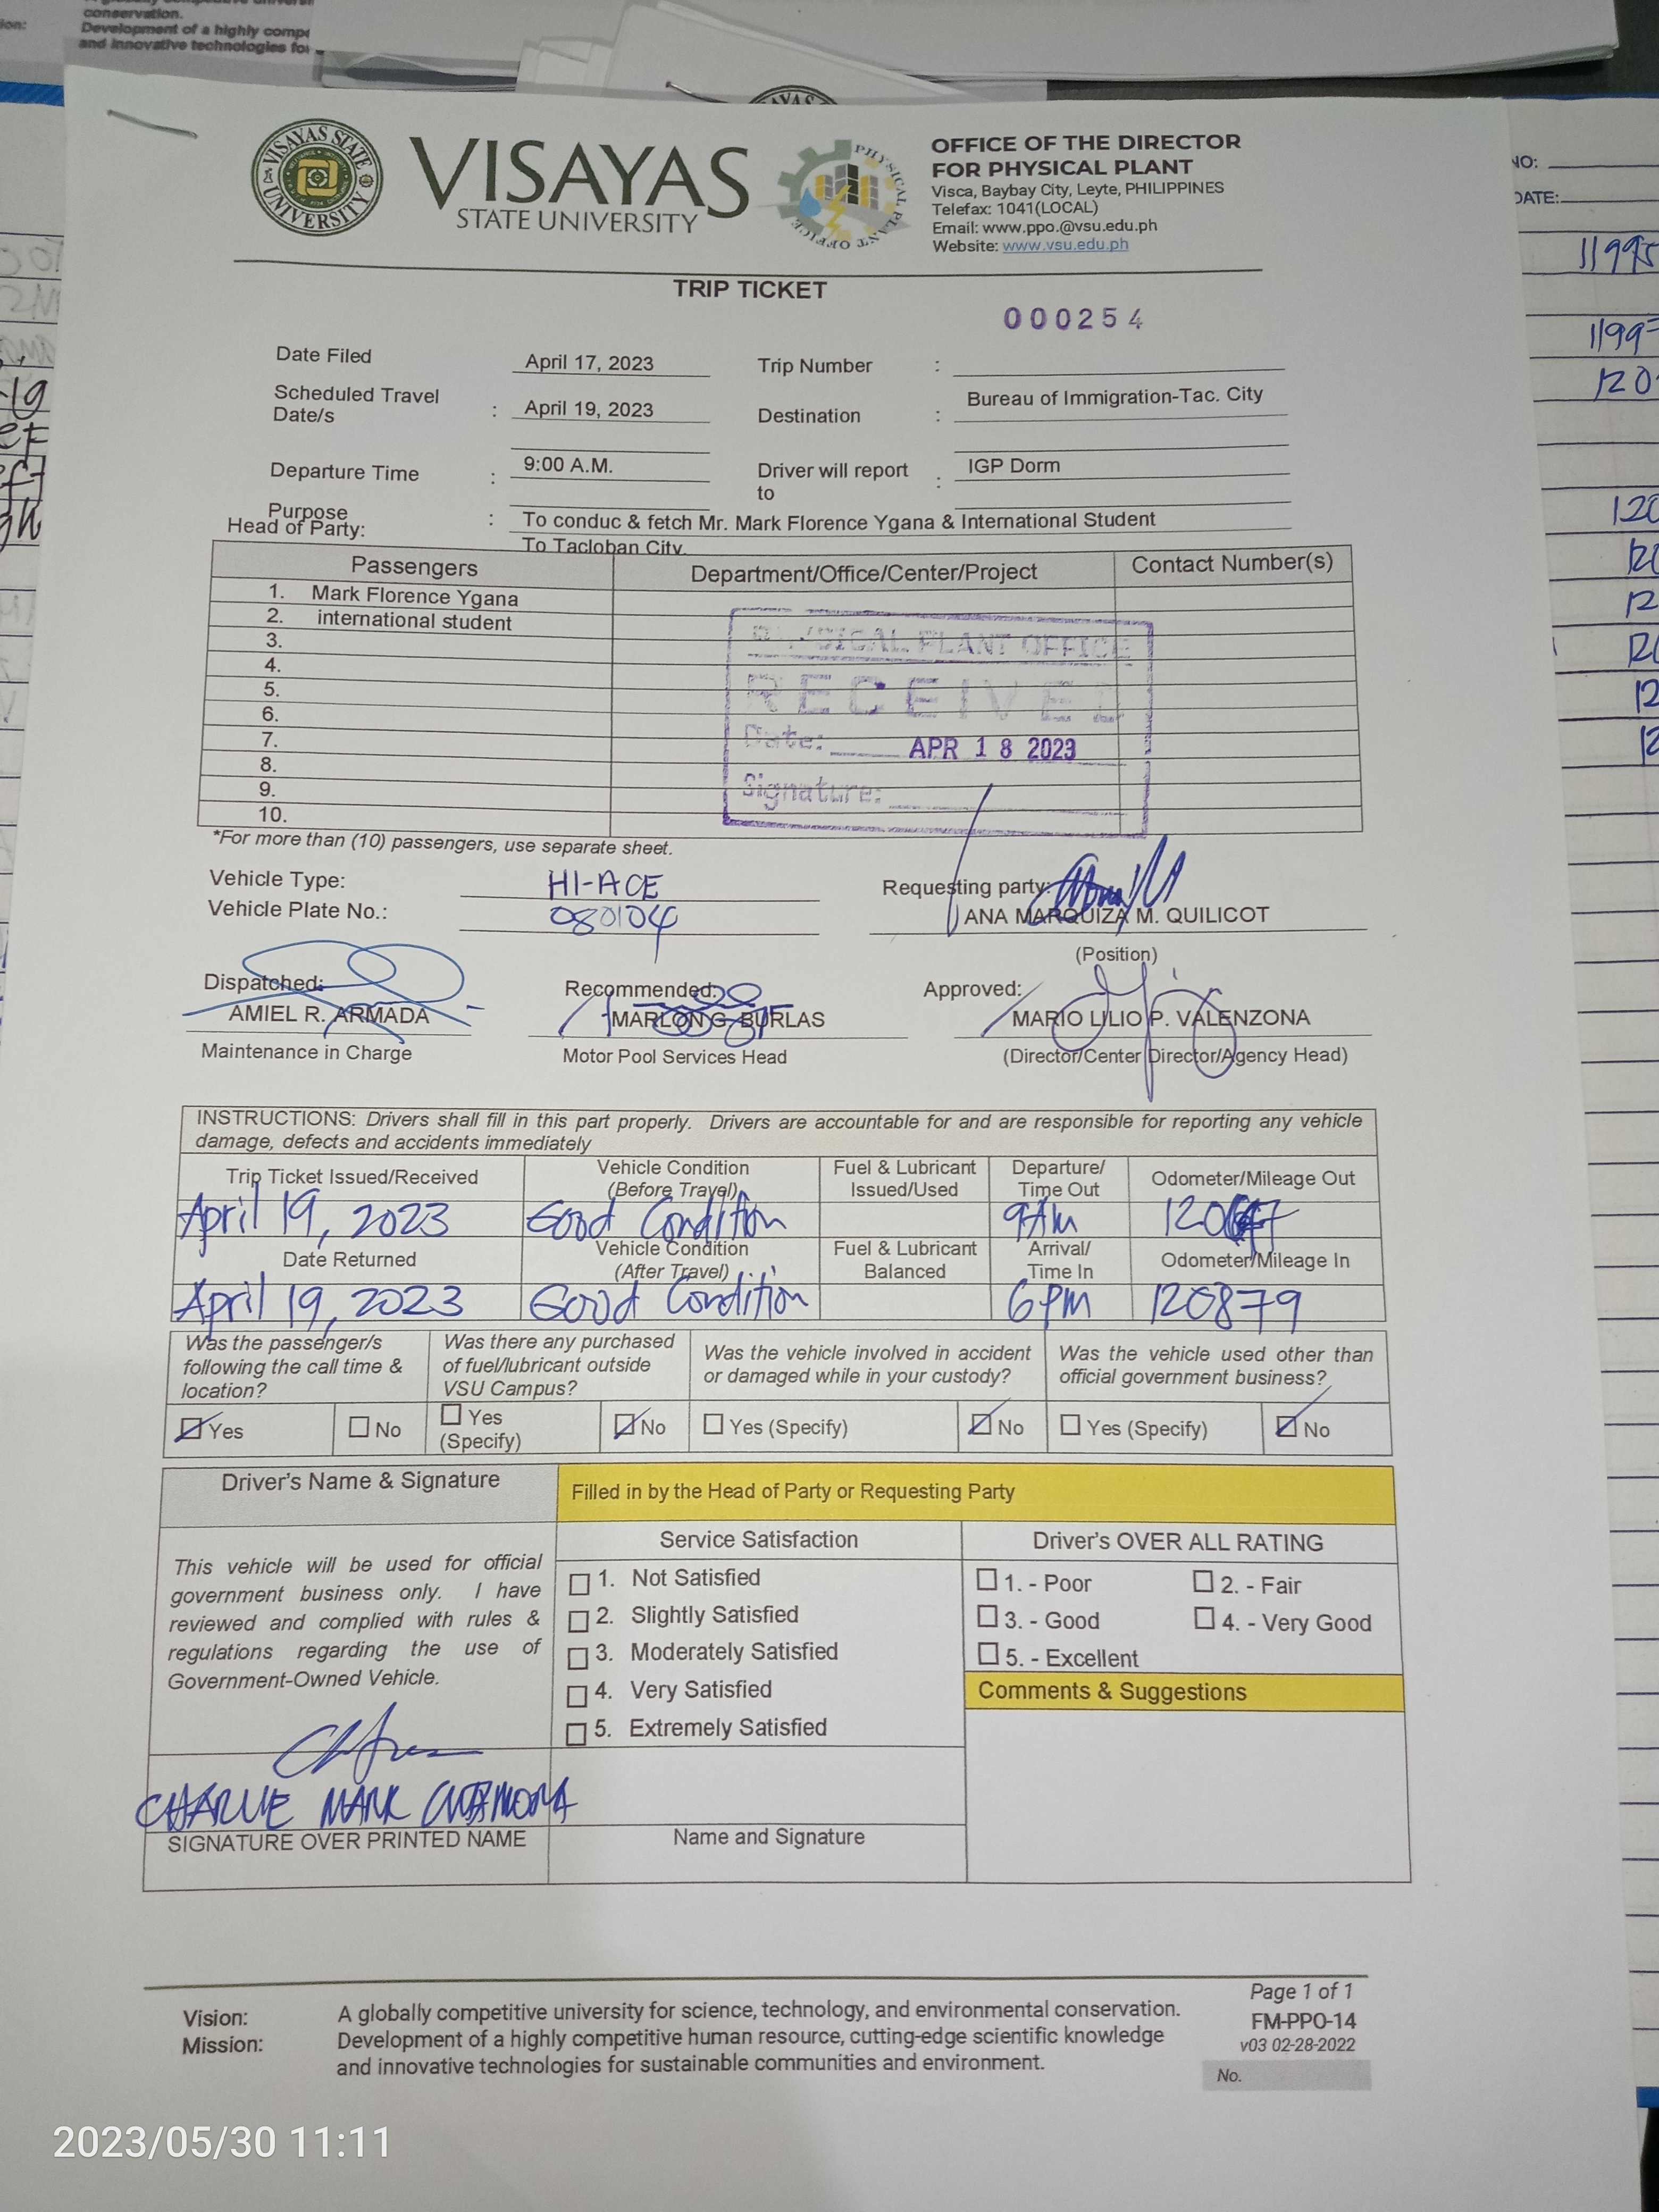 conservation.
Development of a highly
and innovative technologies
VISAYAS STATE UNIVERSITY
VISAYAS
STATE UNIVERSITY
PHYSICAL PLANT OFFICE
OFFICE OF THE DIRECTOR
FOR PHYSICAL PLANT
Visca, Baybay City, Leyte, PHILIPPINES
Telefax: 1041(LOCAL)
Email: www.ppo.@vsu.edu.ph
Website: www.vsu.edu.ph
TRIP TICKET
000254
Date Filed April 17, 2023 Trip Number :
Scheduled Travel Date/s : April 19, 2023 Destination : Bureau of Immigration-Tac. City
Departure Time : 9:00 A.M. Driver will report to : IGP Dorm
Purpose : To conduc & fetch Mr. Mark Florence Ygana & International Student
Head of Party: To Tacloban City.
Passengers Department/Office/Center/Project Contact Number(s)
1. Mark Florence Ygana
2. international student
3.
4.
5.
6.
7.
8.
9.
10.
PHYSICAL PLANT OFFICE
RECEIVED
Date: APR 18 2023
Signature:
*For more than (10) passengers, use separate sheet.
Vehicle Type: HI-ACE Requesting party:
Vehicle Plate No.: 080104 ANA MARQUIZA M. QUILICOT
(Position)
Dispatched: Recommended: Approved:
AMIEL R. ARMADA MARLON G. BURLAS MARIO LILIO P. VALENZONA
Maintenance in Charge Motor Pool Services Head (Director/Center Director/Agency Head)
INSTRUCTIONS: Drivers shall fill in this part properly. Drivers are accountable for and are responsible for reporting any vehicle
damage, defects and accidents immediately
Trip Ticket Issued/Received Vehicle Condition (Before Travel) Fuel & Lubricant Issued/Used Departure/ Time Out Odometer/Mileage Out
April 19, 2023 Good Condition 9AM
Date Returned Vehicle Condition (After Travel) Fuel & Lubricant Balanced Arrival/ Time In Odometer/Mileage In
April 19, 2023 Good Condition 6PM 120879
Was the passenger/s following the call time & location? Was there any purchased of fuel/lubricant outside VSU Campus? Was the vehicle involved in accident or damaged while in your custody? Was the vehicle used other than official government business?
Yes No Yes (Specify) No Yes (Specify) No Yes (Specify) No
Driver's Name & Signature Filled in by the Head of Party or Requesting Party
Service Satisfaction Driver's OVER ALL RATING
This vehicle will be used for official
government business only. I have
reviewed and complied with rules &
regulations regarding the use of
Government-Owned Vehicle.
1. Not Satisfied
2. Slightly Satisfied
3. Moderately Satisfied
4. Very Satisfied
5. Extremely Satisfied
1. - Poor 2. - Fair
3. - Good 4. - Very Good
5. - Excellent
Comments & Suggestions
CHARLIE MARK
SIGNATURE OVER PRINTED NAME Name and Signature
Vision: A globally competitive university for science, technology, and environmental conservation.
Mission: Development of a highly competitive human resource, cutting-edge scientific knowledge
and innovative technologies for sustainable communities and environment.
Page 1 of 1
FM-PPO-14
v03 02-28-2022
No.
NO:
DATE:
2023/05/30 11:11